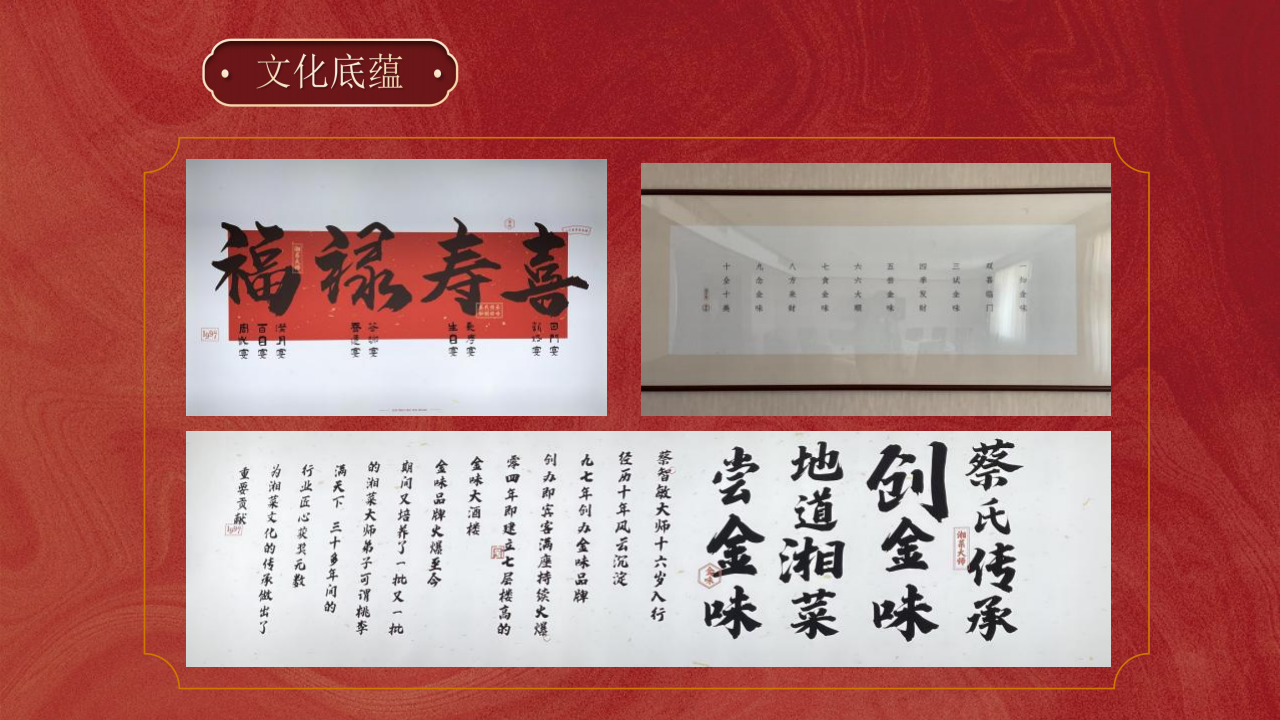 文化底蕴
福禄寿喜
湘菜大师
回门宴
寿宴
生日宴
满月宴
百日宴
周岁宴
1987
一知金味
双喜临门
三试金味
四季发财
五尝金味
六六大顺
七贪金味
八方来财
九念金味
十全十美
蔡氏传承
创金味
地道湘菜
尝金味
湘菜大师
金味
蔡智敏大师十六岁入行
经历十年风云沉淀
九七年创办金味品牌
创办即宾客满座持续火爆
零四年即建立七层楼高的
金味大酒楼
金味品牌火爆至今
期间又培养了一批又一批
的湘菜大师弟子可谓桃李
满天下 三十多年间的
行业匠心获奖无数
为湘菜文化的传承做出了
重要贡献
1987